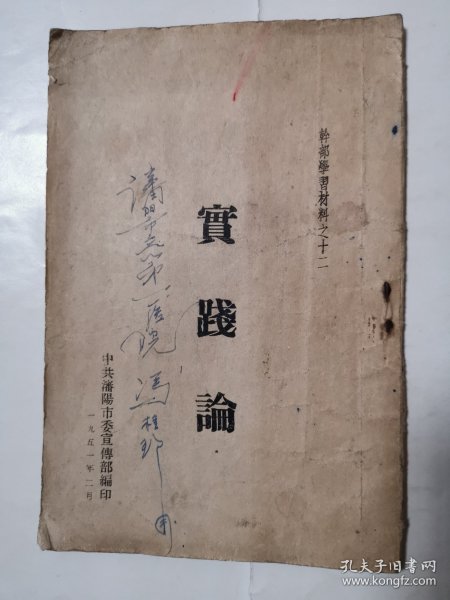 幹部學習材料之十二
實踐論
瀋陽市立第一医院 馮桂珍
中共瀋陽市委宣傳部編印
一九五一年二月
孔夫子旧书网
www.kongfz.com